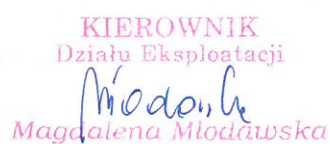 KIEROWNIK
Działu Eksploatacji
Magdalena Młodawska